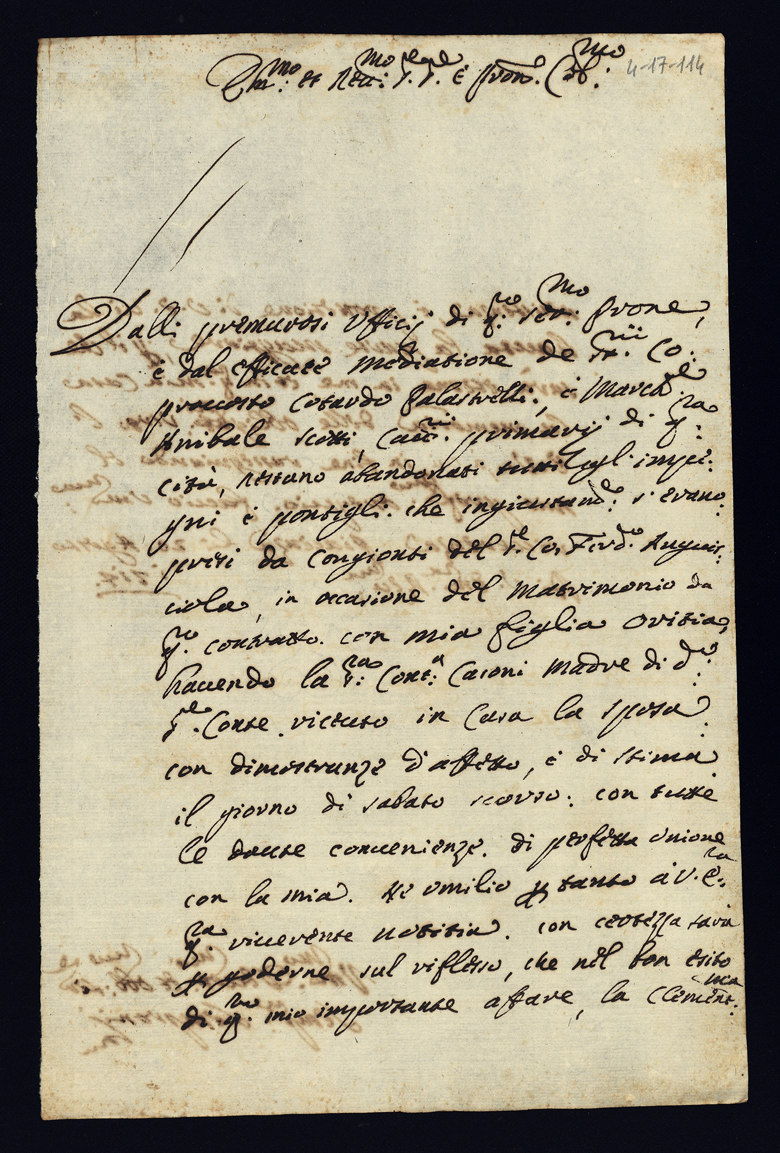 Em.mo et Rev.mo S.r S.r e Pron. Col.mo
4-17-114
Dalli premurosi Ufficij di q.to Ser.mo Prone,
è dal efficace mediatione de SS.rii Co:
Proccosto Cotardo Palastrelli, è March.se
Anibale Scotti, Cau.rii primarij di q.ta
città, restano abandonati tutti gl'impe:
gni è pontigli che ingiustam.te s'erano
presi da congionti del S.r Co. Ferd.o Anguis:
ciola, in occasione del Matrimonio da
q.to contratto con mia figlia Ortitia,
hauendo la S.ra Cont.a Casoni Madre di d.o
S.r Conte riceuuto in Casa la sposa
con dimostranze d'affetto, è di stima
il giorno di sabato scorso: con tutte
le douute conuenienze di perfetta unione
con la mia. Ne umilio p tanto à V. E.za
q.ta riuerente notitia con certezza sarà
p goderne sul riflesso, che nel bon esito
di q.to mio importante affare, la Clement.ma